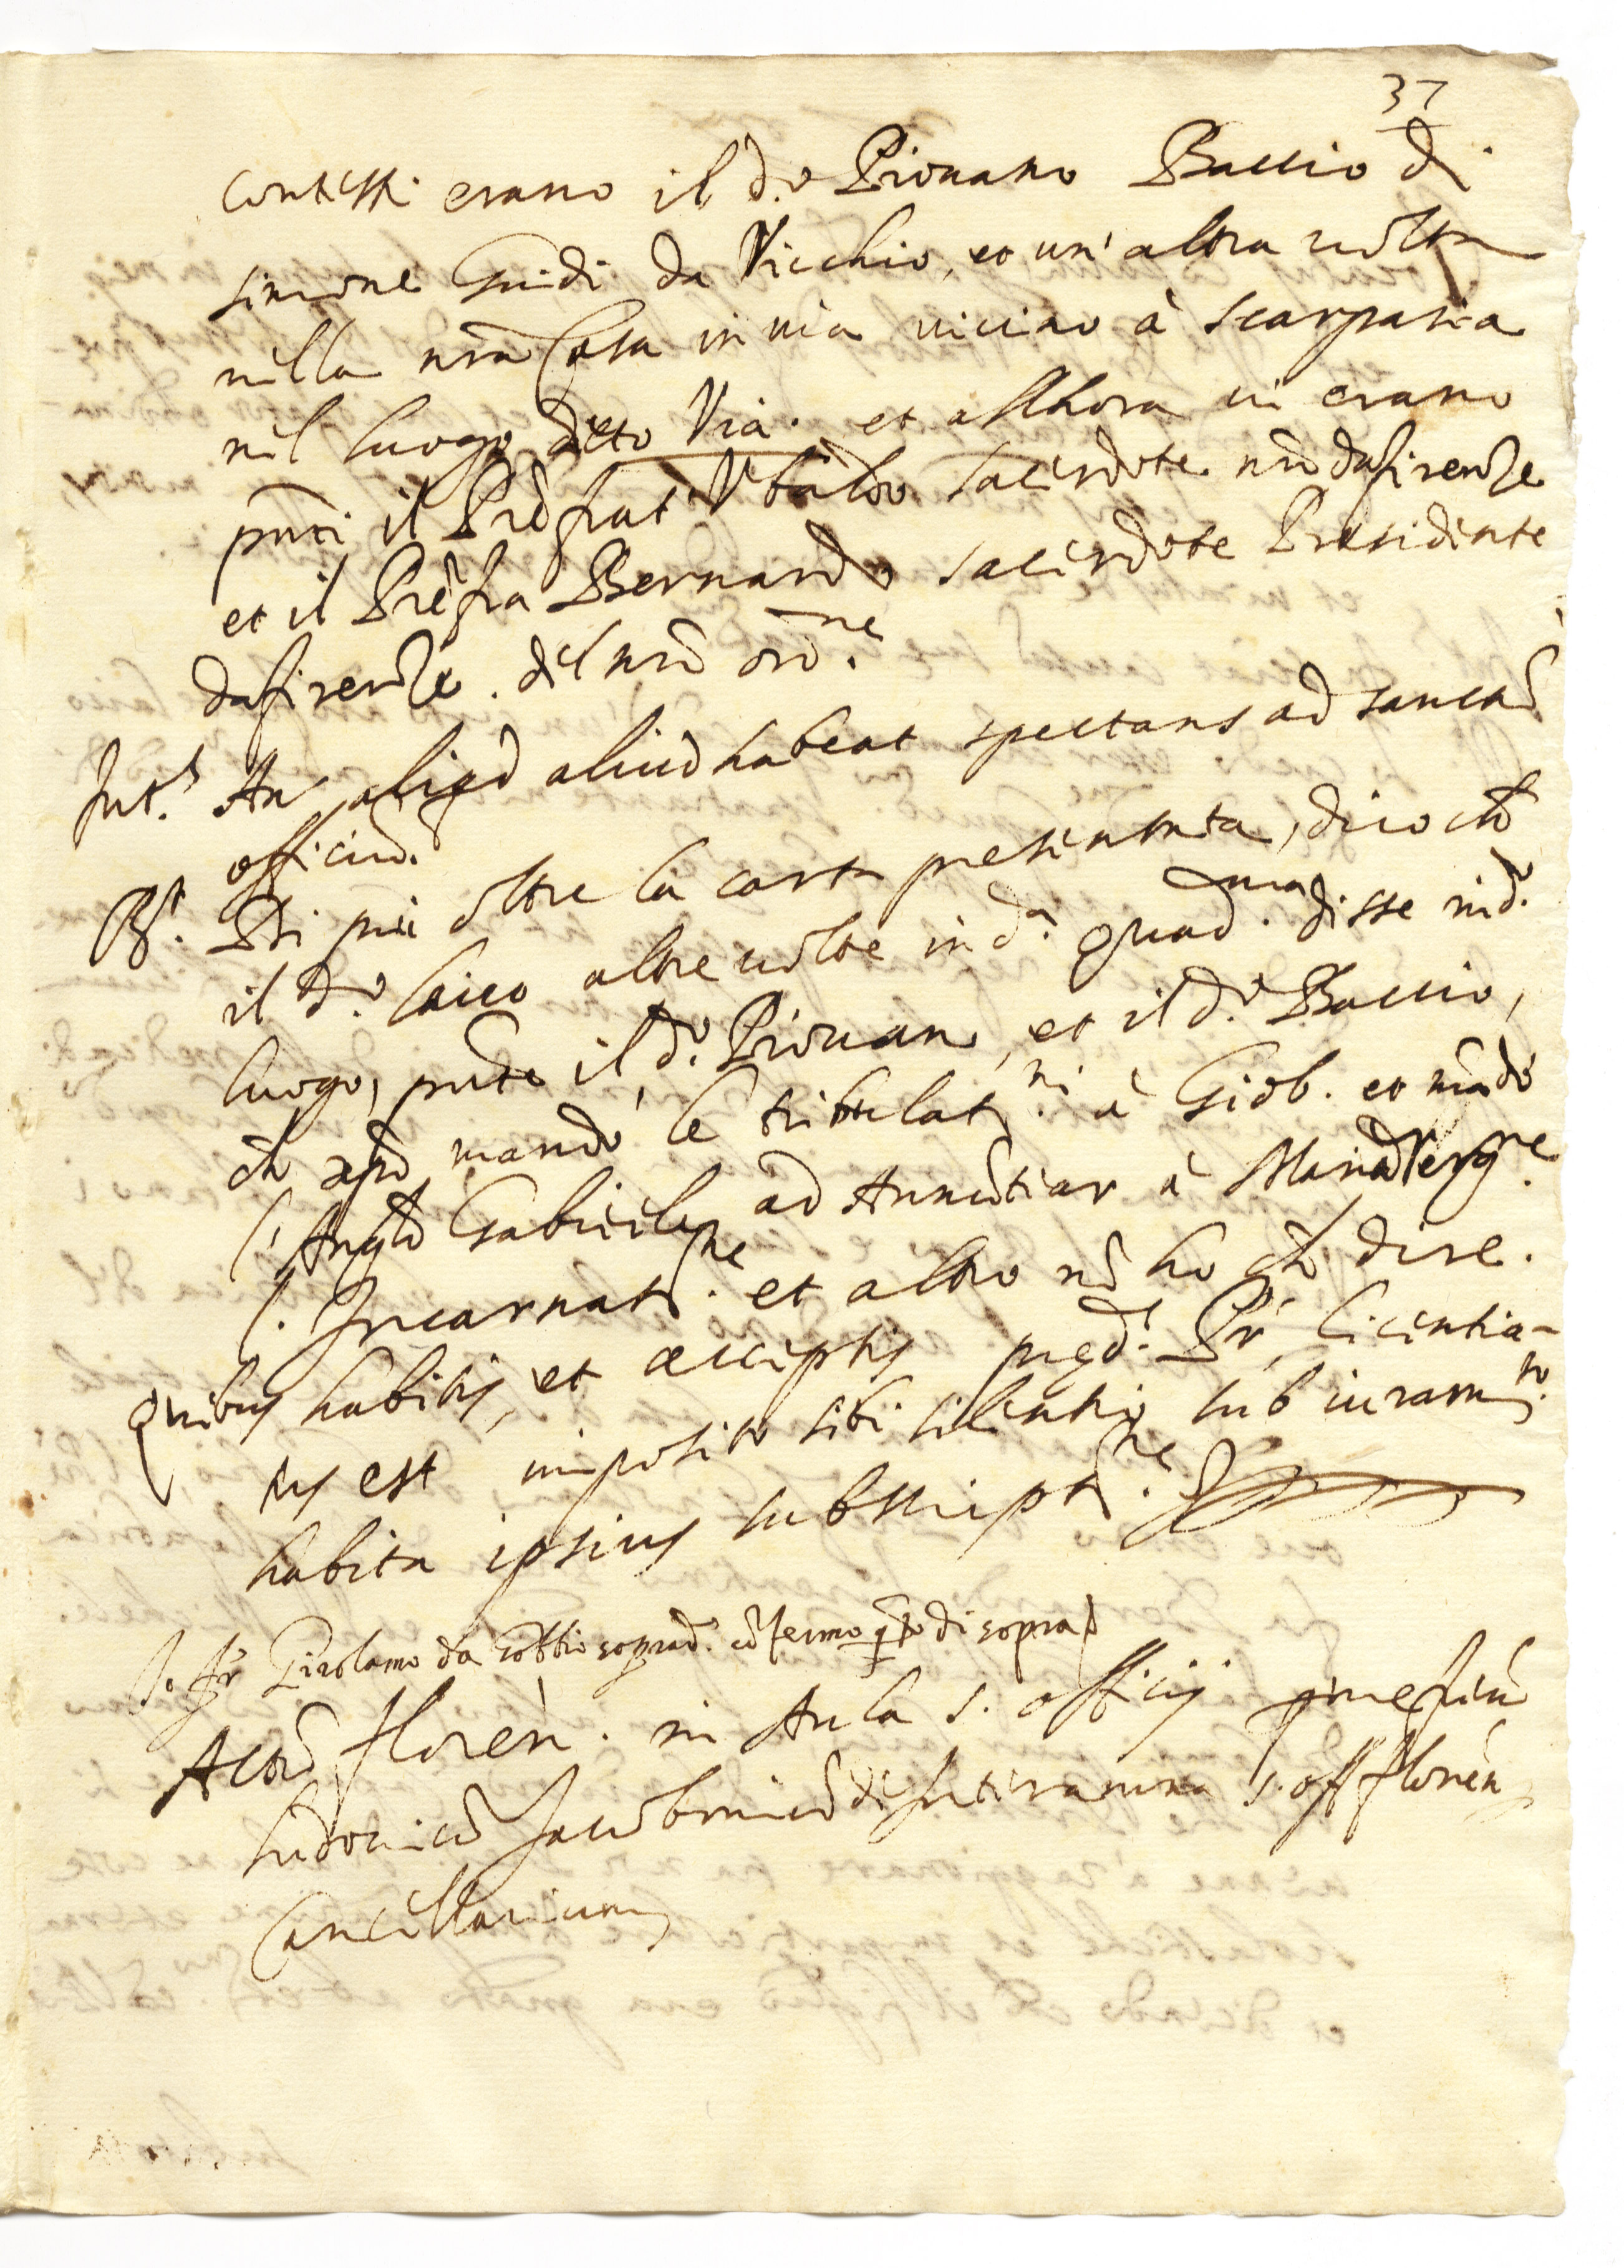 37
contesti erano il d.º Piovano Baccio di
simone Guidi da Vicchio, et un' altra uolta
nella nrã Casa in uia uicino à scarparia
nel luogo detto Via. et allhora ui erano
pnti il Prẽ frat' Vbaldo sacerdote nrõ da firenze
et il Prẽ fra Bernardo sacerdote Presidente
da firenze. del nrõ ord.ne
Int.s An aliqd aliud habeat spectans ad sanctũ
officiũ.
Rt. Di più oltre la carta presentata, dico chẽ
il d.º laico altre uolte in d.a quad.ma disse nel d.º
luogo, pnte il d.º Piouano, et il d.º Baccio,
chẽ xpõ mandò le tribulat.ni à Giob. et mãdò
l'Angelo Gabriele ad Annũtiar à Maria Verg.ne
l'Incarnat.ne et altro nõ ho chẽ dire.
Quibus habitis, et acceptis pred.s Pr. licentia-
tus est imposito sibi silentio sub iuram.to
habita ipsius subscript.ne
Io fr Girolamo da soprad.º cõfermo qto di sopra
Actũ floreñ. in Aula s. officij per me
ludouicũ Jacobiniũ de Interamna s. off floreñ
Cancellarium